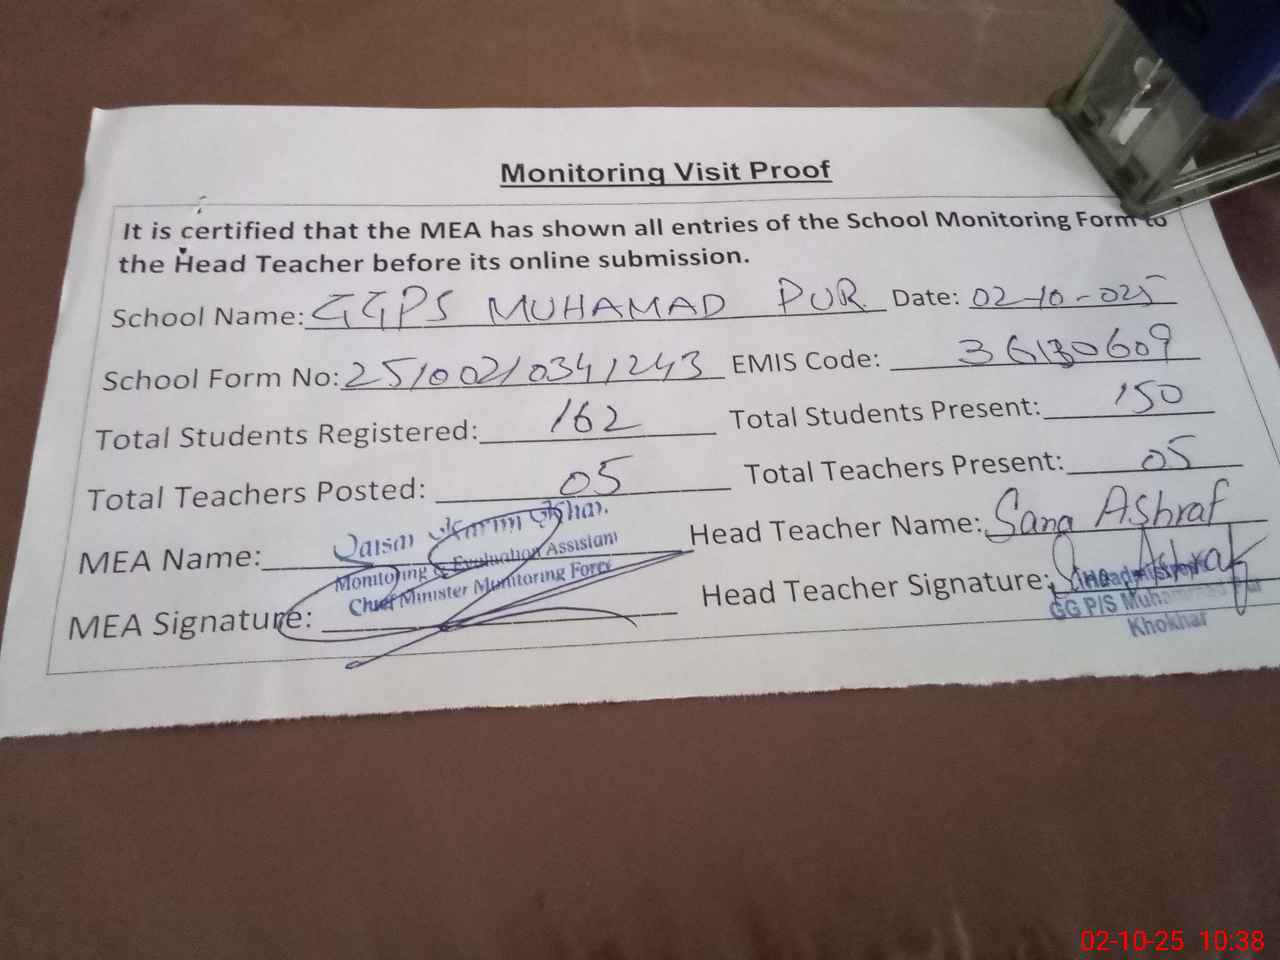 Monitoring Visit Proof
It is certified that the MEA has shown all entries of the School Monitoring Form to
the Head Teacher before its online submission.
School Name: GGPS MUHAMAD PUR Date: 02-10-025
School Form No: 25100210341243 EMIS Code: 36130609
Total Students Registered: 162 Total Students Present: 150
Total Teachers Posted: 05 Total Teachers Present: 05
MEA Name: Head Teacher Name: Sana Ashraf
Monitoring & Evaluation Assistant
Chief Minister Monitoring Force
MEA Signature: Head Teacher Signature: Sana Ashraf
GG P/S Muhammad Pur
Khokhar
02-10-25 10:38